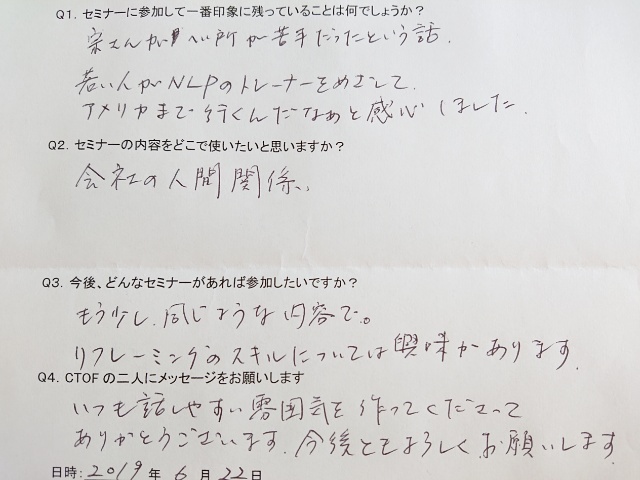 Q1. セミナーに参加して一番印象に残っていることは何でしょうか？
宗さんが 所が苦手だったという話.
若い人がNLPのトレーナーをめざして.
アメリカまで行くんだなぁと感心しました.
Q2. セミナーの内容をどこで使いたいと思いますか？
会社の人間関係、
Q3. 今後、どんなセミナーがあれば参加したいですか？
もう少し、同じような内容で。
リフレーミングのスキルについては興味があります.
Q4. CTOFの二人にメッセージをお願いします
いつも話しやすい雰囲気を作ってくださって
ありがとうございます.今後ともよろしくお願いします
日時: 2019年 6月 22日